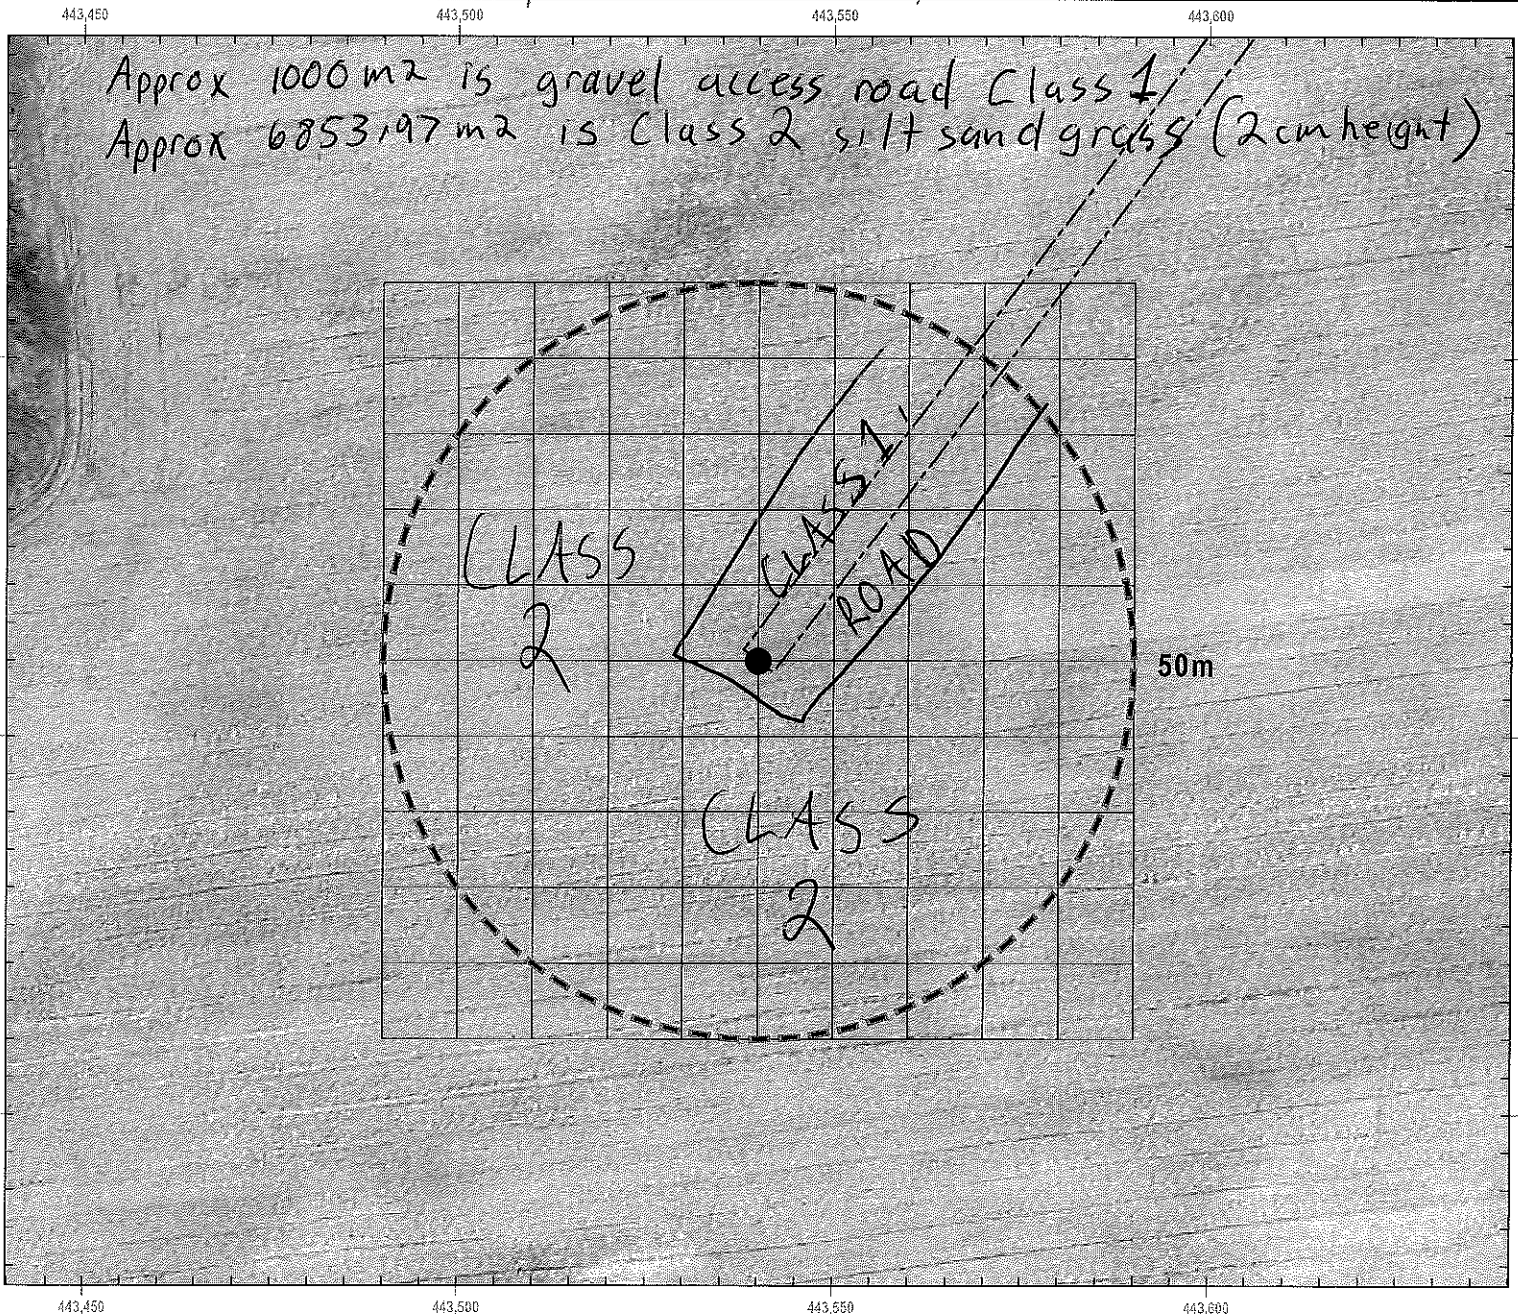 443,450 443,500 443,550 443,600
Approx 1000 m2 is gravel access road Class 1
Approx 6853,97 m2 is Class 2 silt sand grass (2 cm height)
CLASS 1
ROAD
CLASS
2
50m
CLASS
2
443,450 443,500 443,550 443,600